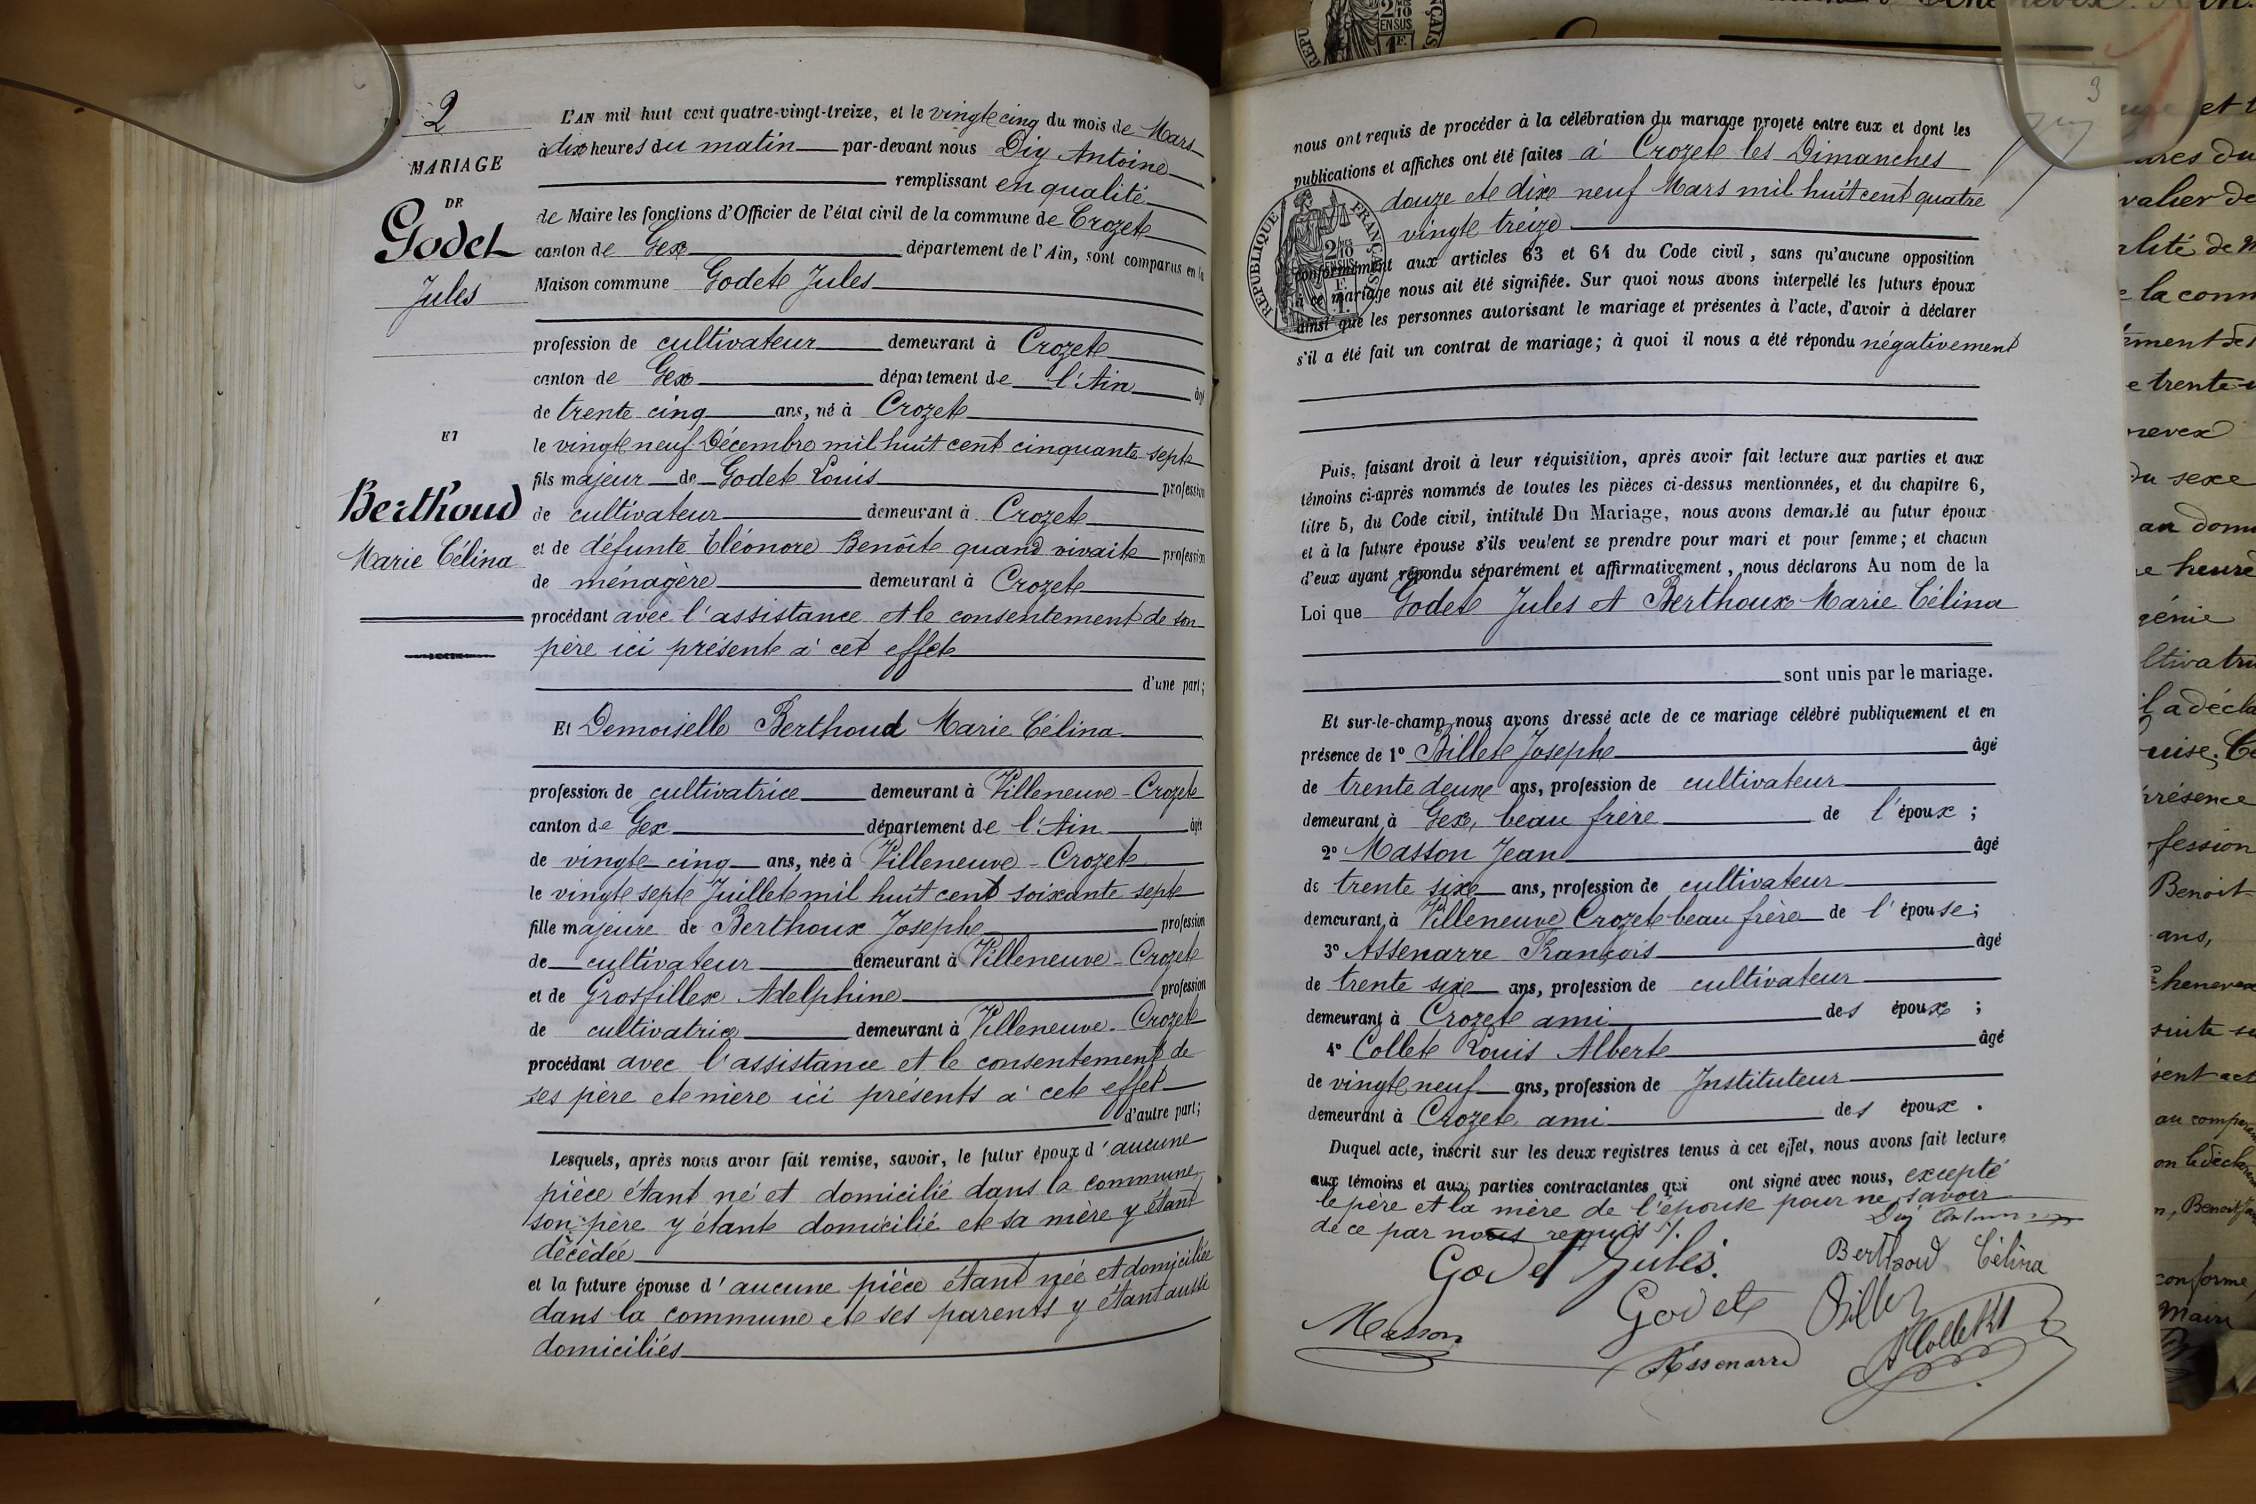 2
MARIAGE
DE
Godet
Jules
ET
Berthoud
Marie Célina
L'AN mil huit cent quatre-vingt-treize, et le vingt cinq du mois de Mars
à dix heures du matin par-devant nous Diy Antoine
remplissant en qualité
de Maire les fonctions d'Officier de l'état civil de la commune de Crozet
canton de Gex département de l'Ain, sont comparus en la
Maison commune Godet Jules
profession de cultivateur demeurant à Crozet
canton de Gex département de l'Ain âgé
de trente cinq ans, né à Crozet
le vingt neuf Décembre mil huit cent cinquante sept
fils majeur de Godet Louis profession
de cultivateur demeurant à Crozet
et de défunte Eléonore Benoît quand vivait profession
de ménagère demeurant à Crozet
procédant avec l'assistance et le consentement de son
père ici présent à cet effet
d'une part;
Et Demoiselle Berthoud Marie Célina
profession de cultivatrice demeurant à Villeneuve - Crozet
canton de Gex département de l'Ain âgée
de vingt cinq ans, née à Villeneuve - Crozet
le vingt sept Juillet mil huit cent soixante sept
fille majeure de Berthoux Joseph profession
de cultivateur demeurant à Villeneuve - Crozet
et de Grosfillex Adelphine profession
de cultivatrice demeurant à Villeneuve - Crozet
procédant avec l'assistance et le consentement de
ses père et mère ici présents à cet effet
d'autre part;
Lesquels, après nous avoir fait remise, savoir, le futur époux d'aucune
pièce étant né et domicilié dans la commune,
son père y étant domicilié et sa mère y étant
décèdée
et la future épouse d'aucune pièce étant née et domiciliée
dans la commune et ses parents y étant aussi
domiciliés
3
nous ont requis de procéder à la célébration du mariage projeté entre eux et dont les
publications et affiches ont été faites à Crozet les Dimanches
douze et dix neuf Mars mil huit cent quatre
vingt treize
RÉPUBLIQUE FRANÇAISE
2/10 EN SUS
conformément aux articles 63 et 64 du Code civil, sans qu'aucune opposition
à ce mariage nous ait été signifiée. Sur quoi nous avons interpellé les futurs époux
ainsi que les personnes autorisant le mariage et présentes à l'acte, d'avoir à déclarer
s'il a été fait un contrat de mariage; à quoi il nous a été répondu négativement
Puis, faisant droit à leur réquisition, après avoir fait lecture aux parties et aux
témoins ci-après nommés de toutes les pièces ci-dessus mentionnées, et du chapitre 6,
titre 5, du Code civil, intitulé Du Mariage, nous avons demandé au futur époux
et à la future épouse s'ils veulent se prendre pour mari et pour femme; et chacun
d'eux ayant répondu séparément et affirmativement, nous déclarons Au nom de la
Loi que Godet Jules et Berthoux Marie Célina
sont unis par le mariage.
Et sur-le-champ nous avons dressé acte de ce mariage célébré publiquement et en
présence de 1° Billet Joseph âgé
de trente deux ans, profession de cultivateur
demeurant à Gex, beau frère de l'époux;
2° Masson Jean âgé
de trente six ans, profession de cultivateur
demeurant à Villeneuve Crozet beau frère de l'épouse;
3° Assenarre François âgé
de trente six ans, profession de cultivateur
demeurant à Crozet ami des époux;
4° Collet Louis Albert âgé
de vingt neuf ans, profession de Instituteur
demeurant à Crozet ami des époux.
Duquel acte, inscrit sur les deux registres tenus à cet effet, nous avons fait lecture
aux témoins et aux parties contractantes qui ont signé avec nous, excepté
le père et la mère de l'épouse pour ne savoir
de ce par nous requis
Godet Jules.
Berthoud Célina
Godet
Billet
Masson
Assenarre